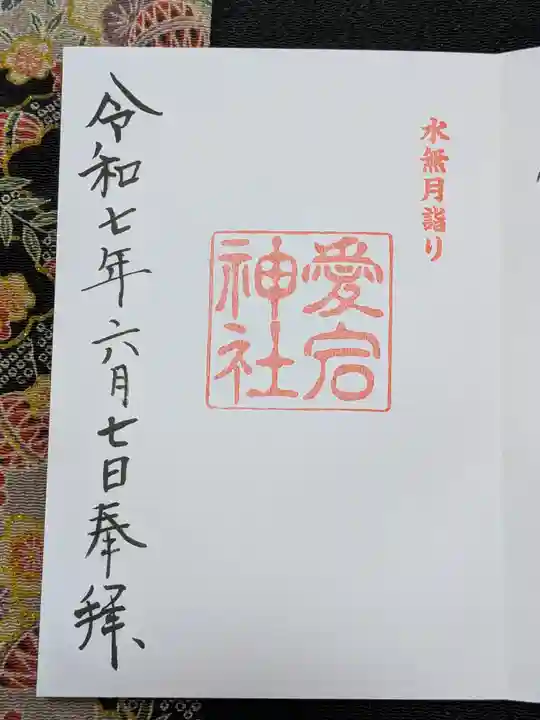 水無月詣り
愛宕
神社
令和七年六月七日奉拝